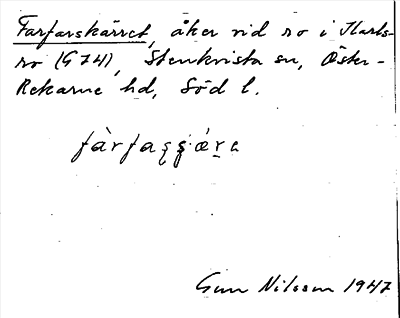 Farfarskärret, åker vid so i Karls-
ro (G 74), Stenkvista sn, Öster-
Rekarne hd, Söd l.
Gun Nilsson 1947